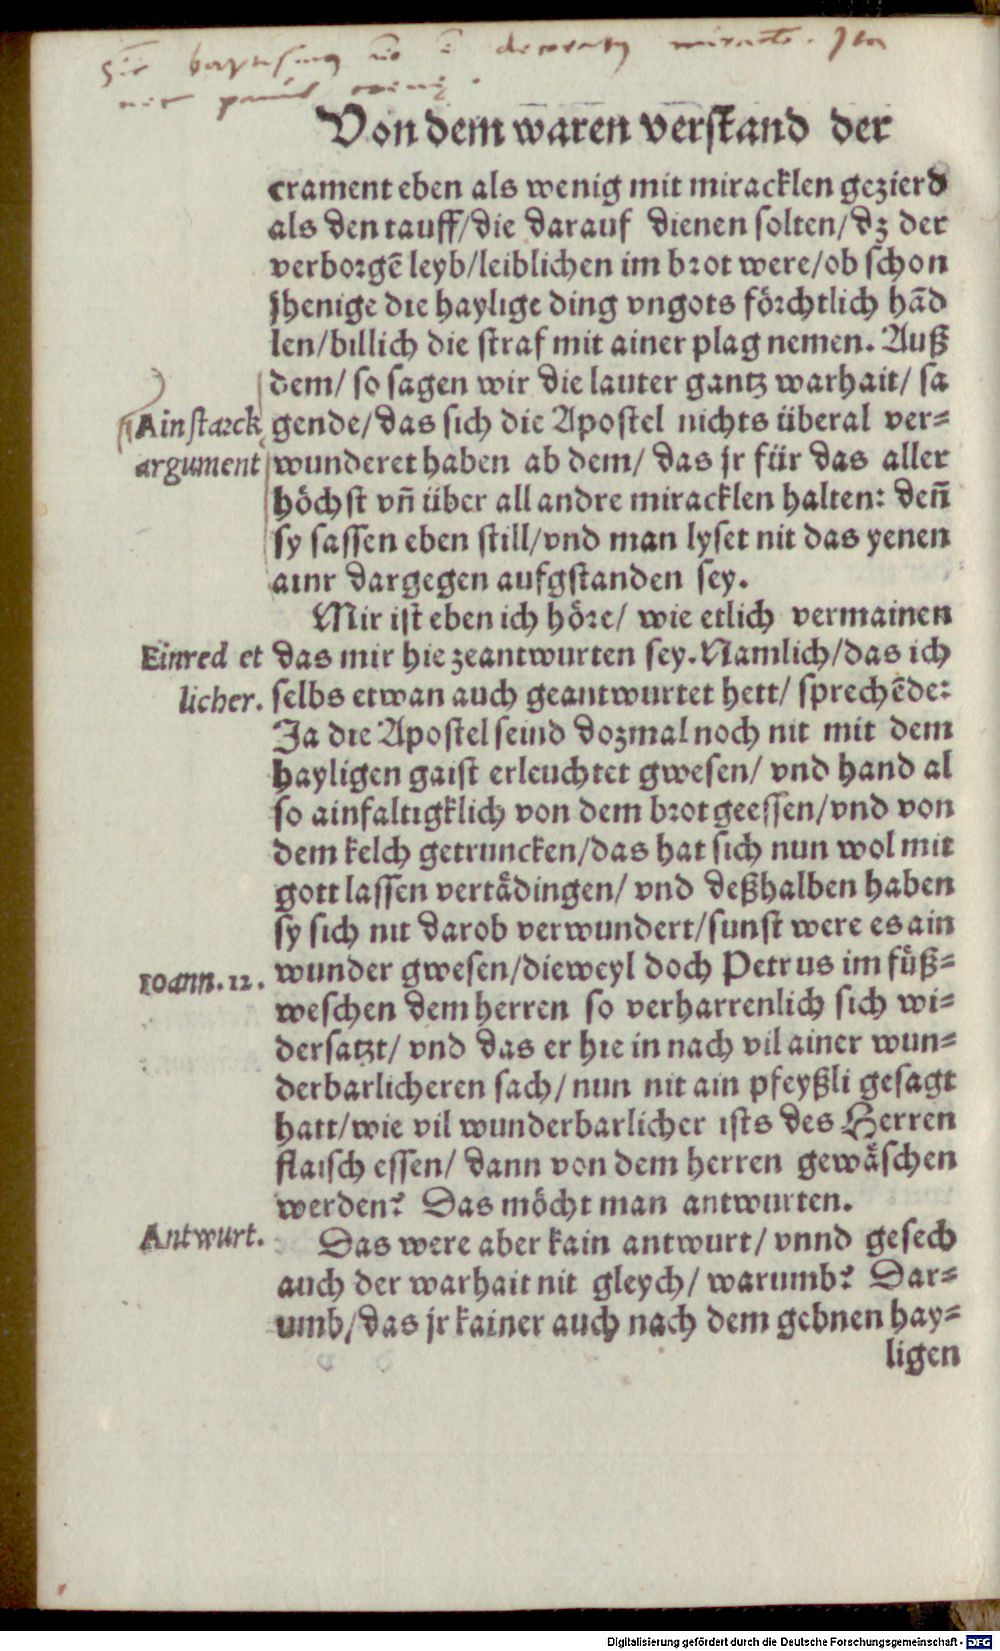 Von dem waren verstand der
crament eben als wenig mit miracklen gezierd
als den tauff/die darauf dienen solten/dz der
verborgẽ leyb/leiblichen im brot were/ob schon
jhenige die haylige ding vngots förchtlich hãd
len/billich die straf mit ainer plag nemen. Auß
dem/ so sagen wir die lauter gantz warhait/ sa
Ain starck gende/das sich die Apostel nichts überal ver⸗
argument wunderet haben ab dem/ das jr für das aller
höchst vñ über all andre miracklen halten: deñ
sy sassen eben still/vnd man lyset nit das yenen
ainr dargegen aufgstanden sey.
Mir ist eben ich höre/ wie etlich vermainen
Einred et das mir hie zeantwurten sey. Namlich/das ich
licher. selbs etwan auch geantwurtet hett/ sprechẽde:
Ja die Apostel seind dozmal noch nit mit dem
hayligen gaist erleuchtet gwesen/ vnd hand al
so ainfaltigklich von dem brot geessen/vnd von
dem kelch getruncken/das hat sich nun wol mit
gott lassen vertädingen/ vnd deßhalben haben
sy sich nit darob verwundert/sunst were es ain
Ioann. 12. wunder gwesen/dieweyl doch Petrus im füß⸗
weschen dem herren so verharrenlich sich wi⸗
dersatzt/ vnd das er hie in nach vil ainer wun⸗
derbarlicheren sach/ nun nit ain pfeyßli gesagt
hatt/wie vil wunderbarlicher ists des Herren
flaisch essen/ dann von dem herren gewäschen
werden? Das möcht man antwurten.
Antwurt. Das were aber kain antwurt/ vnnd gesech
auch der warhait nit gleych/ warumb? Dar⸗
umb/das jr kainer auch nach dem gebnen hay⸗
ligen
Digitalisierung gefördert durch die Deutsche Forschungsgemeinschaft - DFG